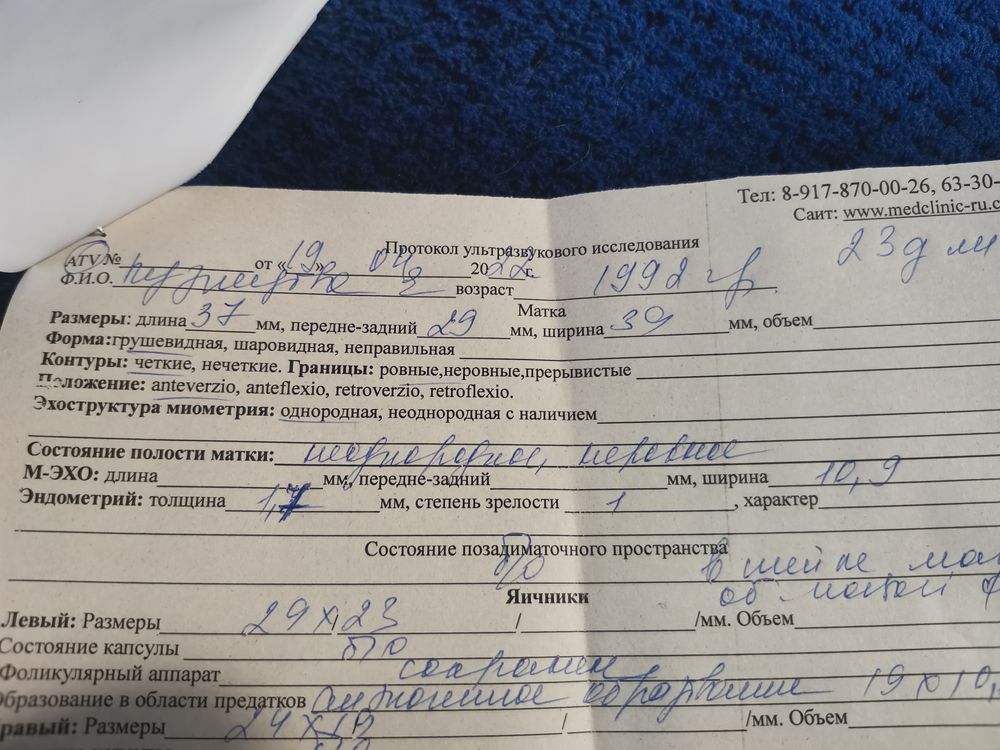 Тел: 8-917-870-00-26, 63-30-
Сайт: www.medclinic-ru.c
Протокол ультразвукового исследования
23д
ATV № от «19» 04 2022 г.
Ф.И.О. возраст 1992 гр
Матка
Размеры: длина 37 мм, передне-задний 29 мм, ширина 39 мм, объем
Форма:грушевидная, шаровидная, неправильная
Контуры: четкие, нечеткие. Границы: ровные,неровные,прерывистые
Положение: anteverzio, anteflexio, retroverzio, retroflexio.
Эхоструктура миометрия: однородная, неоднородная с наличием
Состояние полости матки: неоднородное, неровное
М-ЭХО: длина мм, передне-задний мм, ширина 10,9
Эндометрий: толщина 1,7 мм, степень зрелости 1, характер
Состояние позадиматочного пространства
б/о
в шейке
Яичники
Левый: Размеры 29 х 23 / /мм. Объем
Состояние капсулы б/о
Фоликулярный аппарат сохранен
Образование в области предатков образование 19 х 10,
равый: Размеры 24 х 18 / /мм. Объем